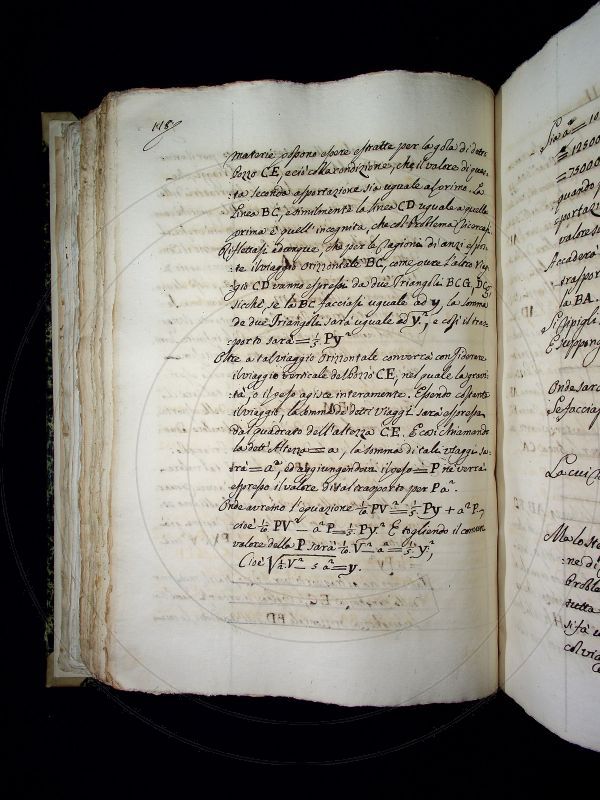 118
materie possono essere estratte per la gola di detto
bozzo CE, e ciò colla condizione, che il valore di que-
ta seconda asportazione sia uguale al primo. La
linea BC, e similmente la linea CD uguale a quella
prima è quell'incognita, che col Problema
Riflettasi adunque, che per le Ragioni di anzi espos-
te il viaggio Orizzontale BC, come pure l'altro Viag-
gio CD vanno espressi da due Triangoli BCG, DCG,
sicchè, se la BC facciasi uguale ad y, la somma
de due Triangoli sarà uguale ad y², e essi il tras-
porto sarà = 1/5 Py²
Oltre a tal viaggio Orizzontale converrà considerare
il viaggio verticale del bozzo CE, nel quale la gravi-
tà, o il peso agisce interamente. Essendo costante
il viaggio, la somma de detti Viaggi sarà espressa
dal quadrato dell'altezza CE. E così chiamando
la dett'Altezza = a, la somma di tali viaggi sa-
rà = a², ed aggiungendovi il peso = P ne verrà
espresso il valore di tal trasporto per P a².
Onde avremo l'equazione 1/10 PV² = 1/5 Py + a² P,
cioè 1/10 PV² – a² P = 1/5 Py². E togliendo il comune
valore della P sarà 1/10 V² – a² = 1/5 y²,
Cioè √ ½ V² – 5 a² = y.
Sia a = 10
= 12500
= 75000
quando
sportazi
valore s
Accaderò
traspor
la BA.
Si pigli
E suppong
Onde sarà
Se faccia
La cui
Ma lo ste
ne di
Proble
tutta
si fà
col via